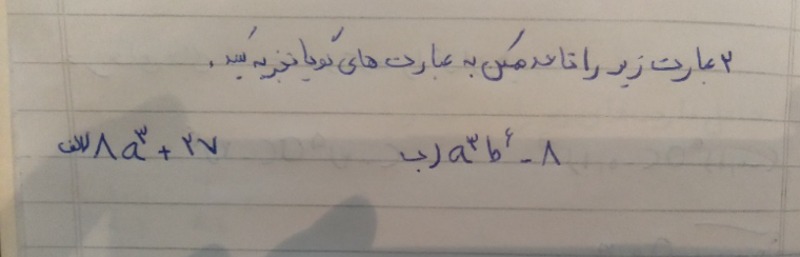 ۲ عبارت زیر را تا حد ممکن به عبارت های گویا تجزیه کنید.
الف) ۸a³ + ۲۷ ب) a³b⁶ - ۸